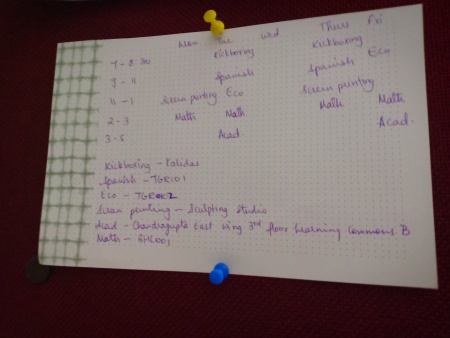 Mon Tue Wed Thur Fri
7-8:30 Kickboxing Kickboxing
9-11 Spanish Spanish Eco
11-1 Screen printing Eco Screen printing
2-3 Math Math Math Math
3-5 Acad Acad.
Kickboxing -
Spanish - TGR101
Eco -
Screen printing - Sculpting studio
Acad - Chandragupta East Wing 3rd floor Learning Commons B
Math -